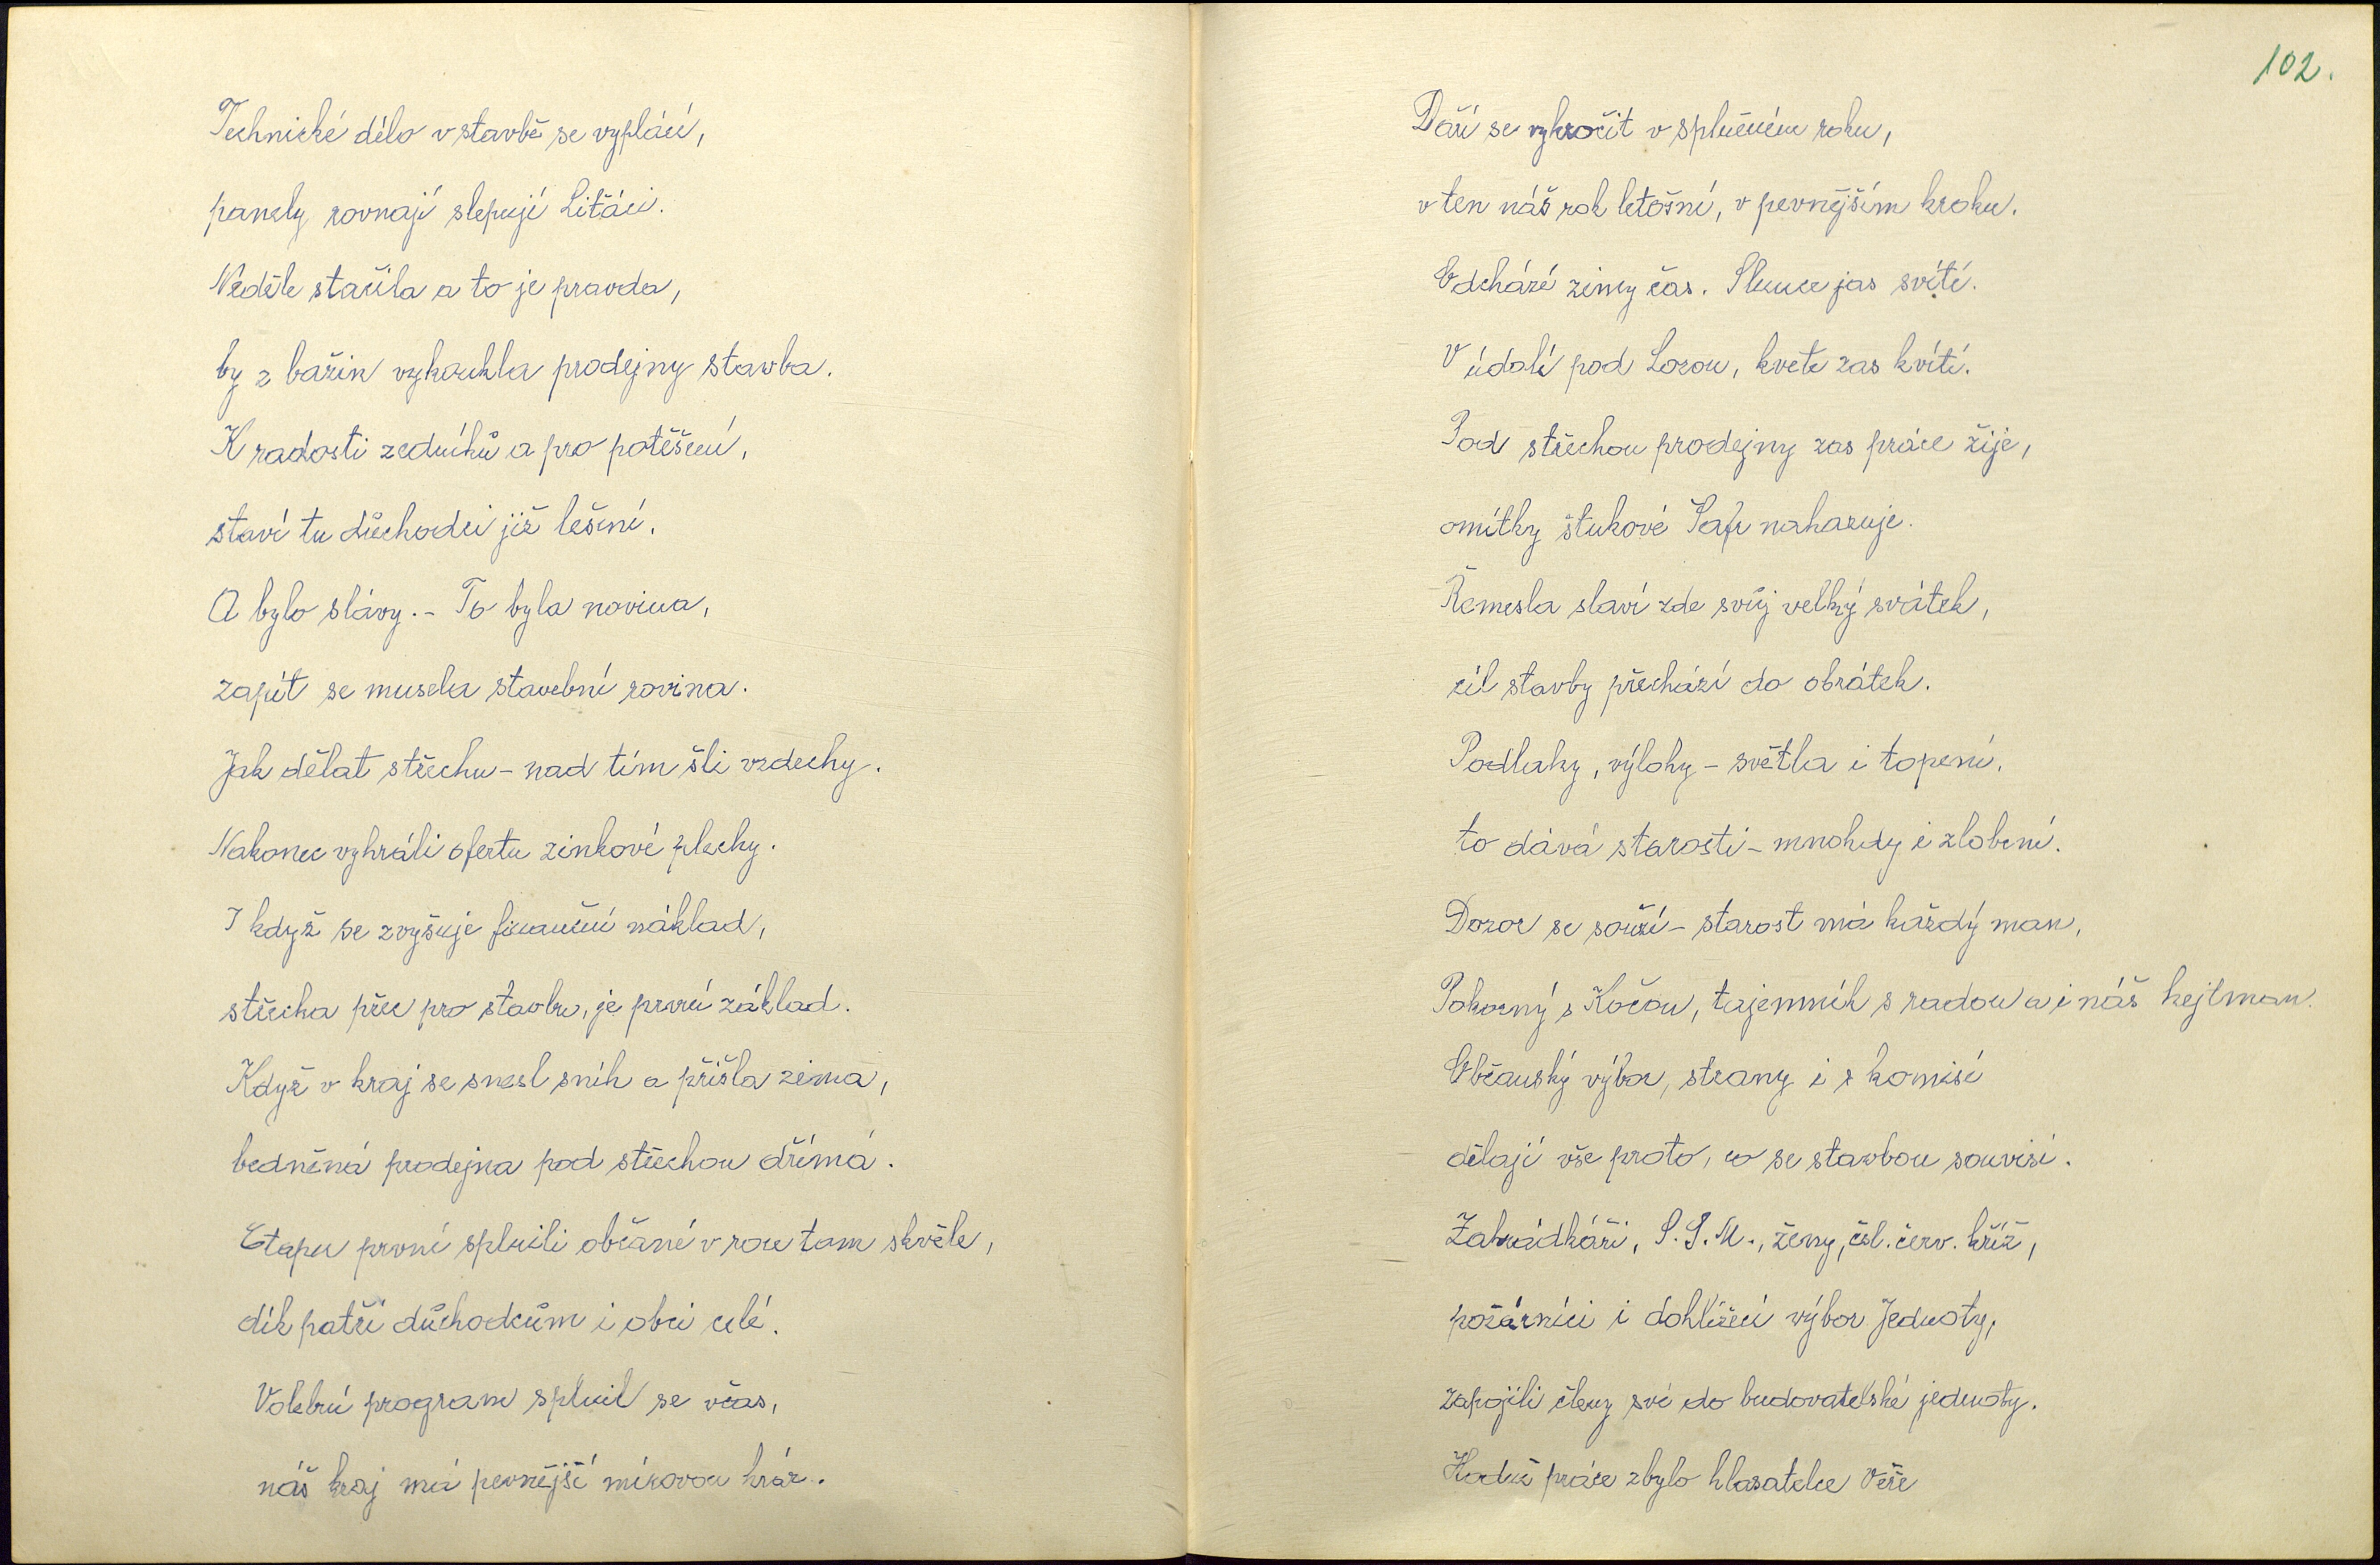 Technické dílo v stavbě se vyplácí,
panely rovnají slepují Litáci.
Neděle stačila a to je pravda,
by z bařin vykoukla prodejny stavba.
K radosti zedníků a pro potěšení,
staví tu důchodci již lešení.
A bylo slávy. - To byla novina,
zapít se musela stavební rovina.
Jak dělat střechu - nad tím šli vzdechy.
Nakonec vyhráli ofertu zinkové plechy.
I když se zvyšuje finanční náklad,
střecha přec pro stavbu, je první základ.
Když v kraj se snesl sníh a přišla zima,
bedněná prodejna pod střechou dřímá.
Etapu první splnili občané v roce tom skvěle,
dík patří důchodcům i obci celé.
Volební program splnil se včas,
náš kraj má pevnější mírovou hráz.
102.
Daří se vykročit v splněném roku,
v ten náš rok letošní, v pevnějším kroku.
Odchází zimy čas. Slunce jas svítí.
V údolí pod Lozou, kvete zas kvítí.
Pod střechou prodejny zas práce žije,
omítky štukové Šafr nahazuje.
Řemesla slaví zde svůj velký svátek,
cíl stavby přechází do obrátek.
Podlahy, výlohy - světla i topení,
to dává starosti - mnohdy i zlobení.
Dozor se souží - starost má každý man,
Pokorný s Kočou, tajemník s radou a i náš hejlman.
Občanský výbor, strany i s komisí
dělají vše proto, co se stavbou souvisí.
Zahrádkáři, S.S.M., ženy, čsl. červ. kříž,
požárníci i dohlížecí výbor Jednoty,
zapojili členy své do budovatelské jednoty.
Hodně práce zbylo hlasatelce Věře